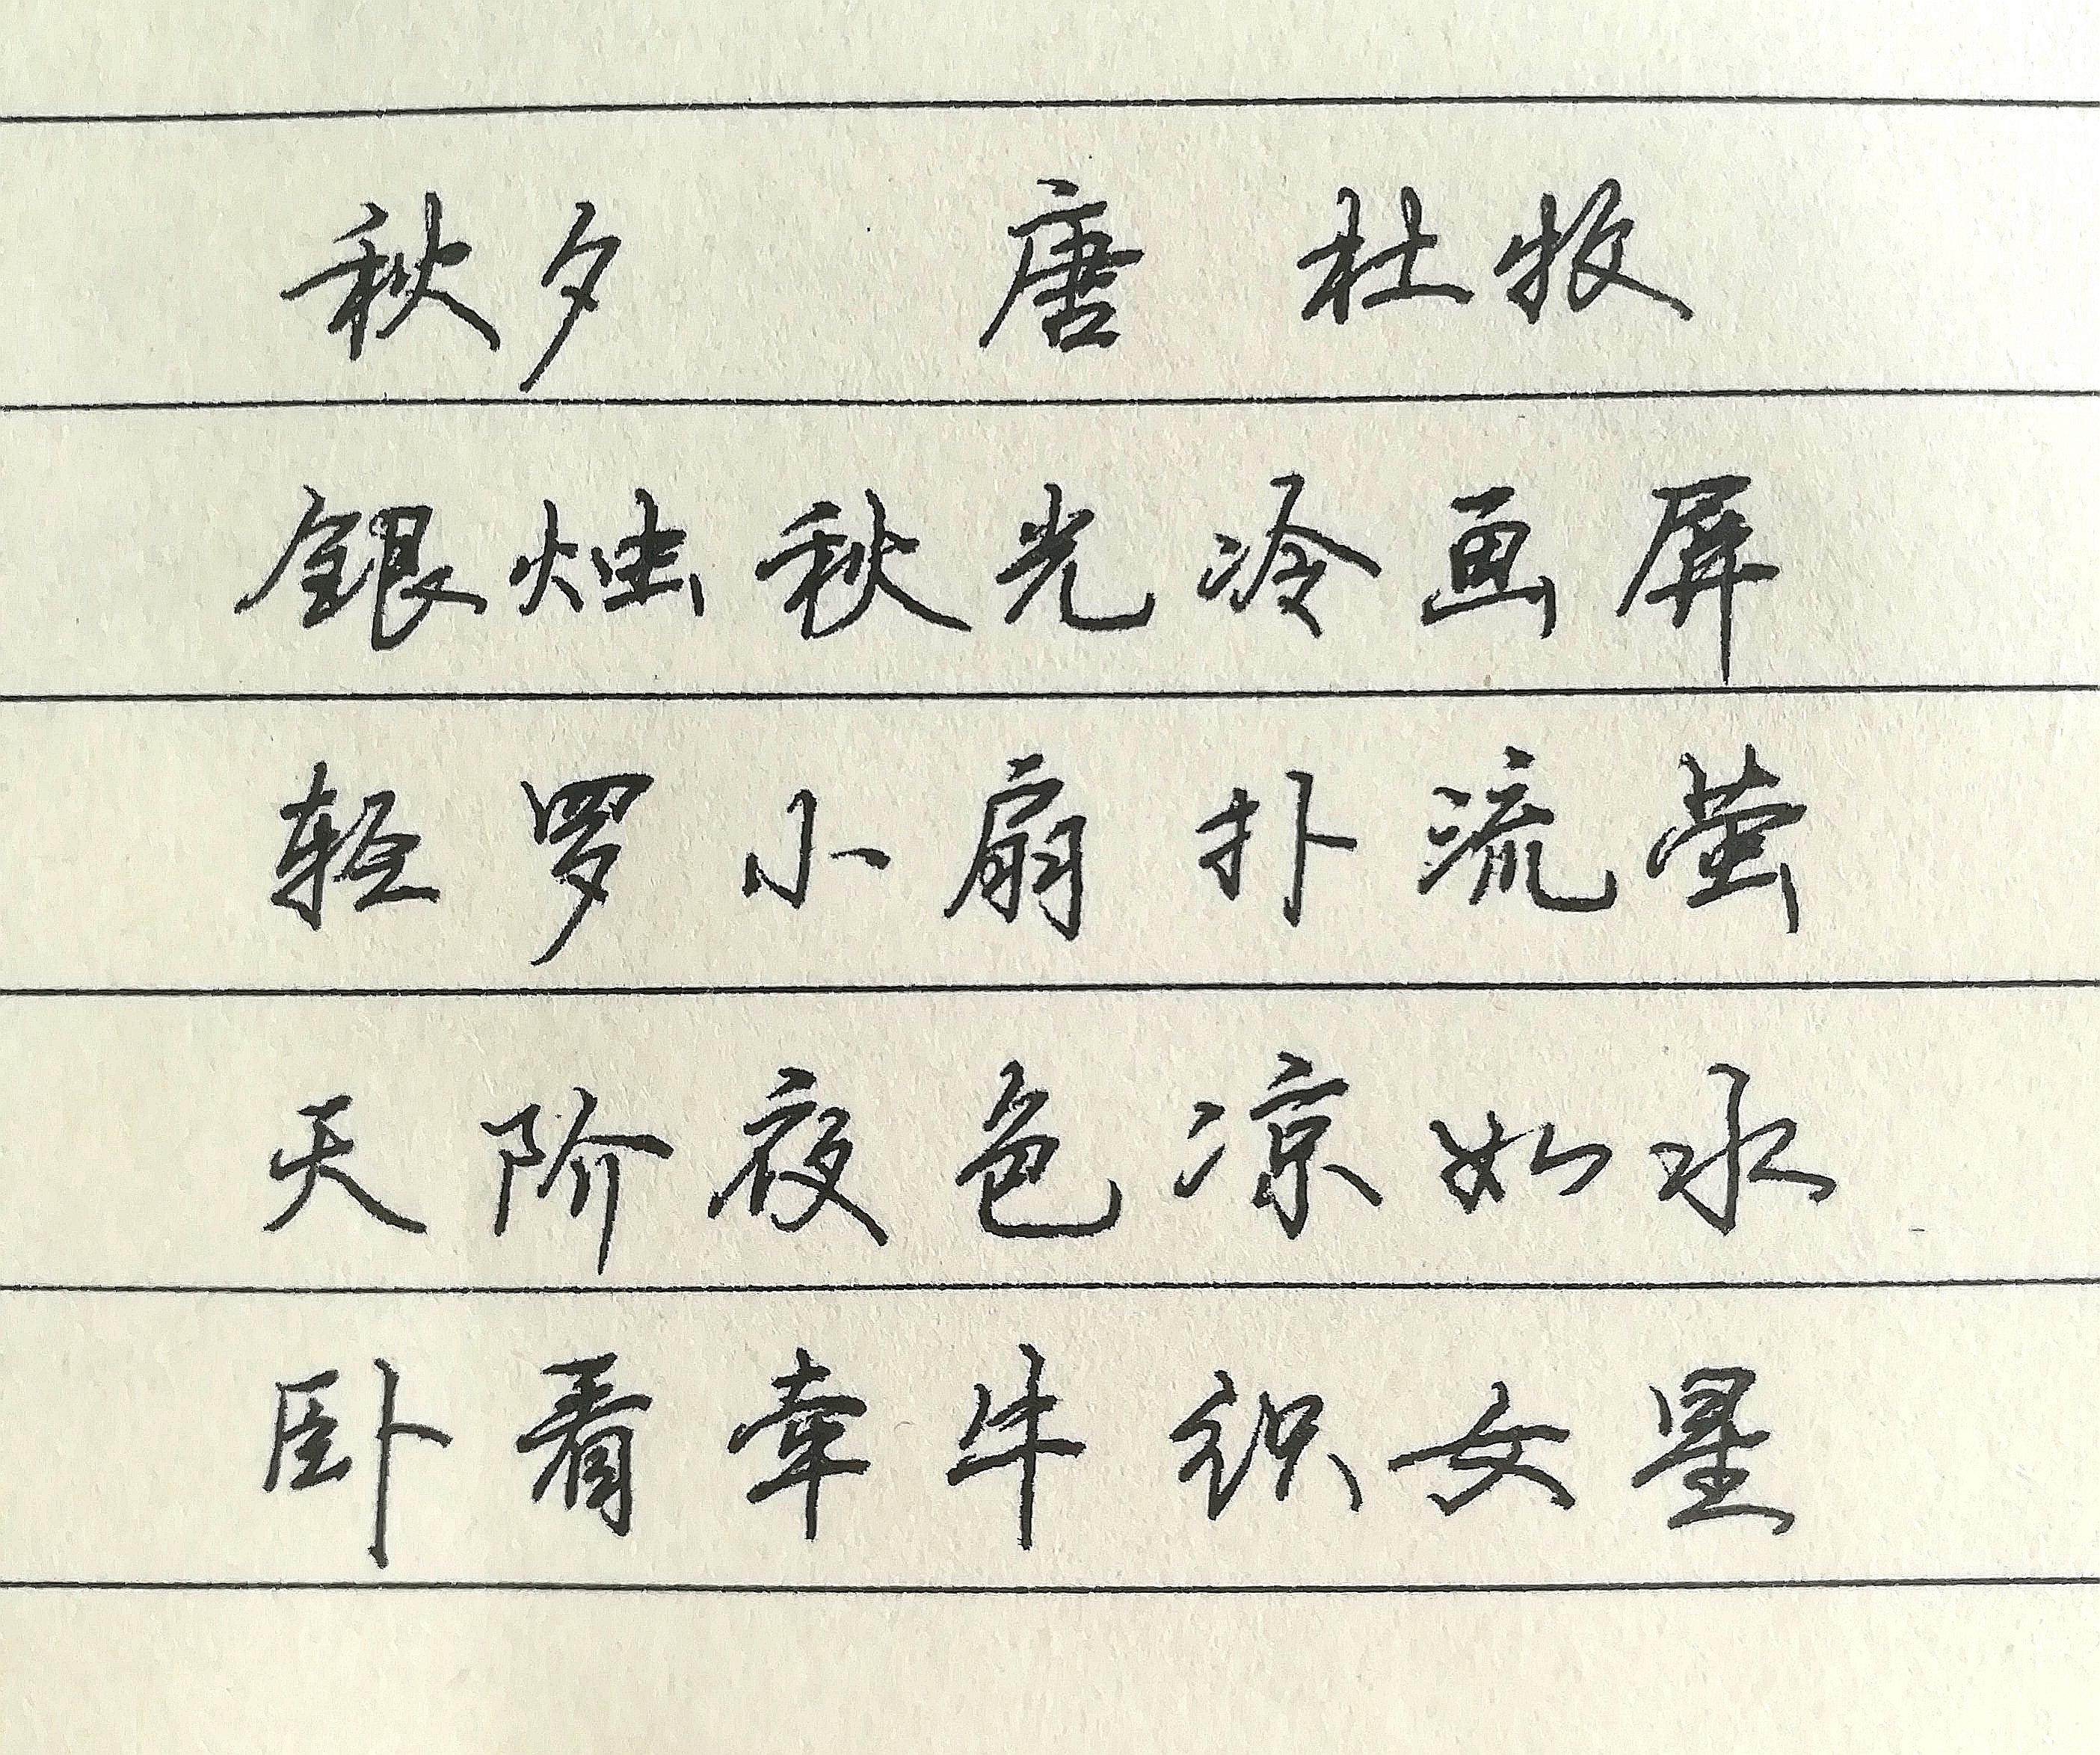 秋夕 唐 杜牧
銀烛秋光冷画屏
轻罗小扇扑流萤
天阶夜色凉如水
卧看牵牛织女星